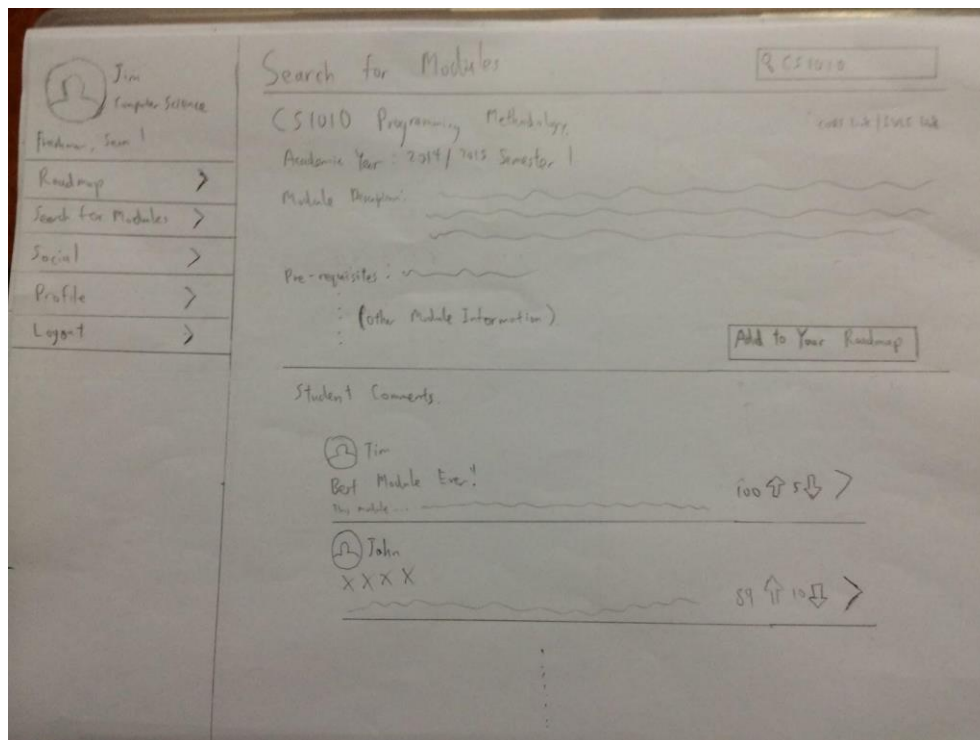 Jim
Computer Science
Freshman, Sem 1
Roadmap >
Search for Modules >
Social >
Profile >
Logout >
Search for Modules
CS1010
CS1010 Programming Methodology
CORS link / IVLE link
Academic Year : 2014/2015 Semester 1
Module Description:
Pre-requisites :
(other Module Information)
Add to Your Roadmap
Student Comments
Tim
Best Module Ever!
This module ...
100 5 >
John
X X X X
89 10 >